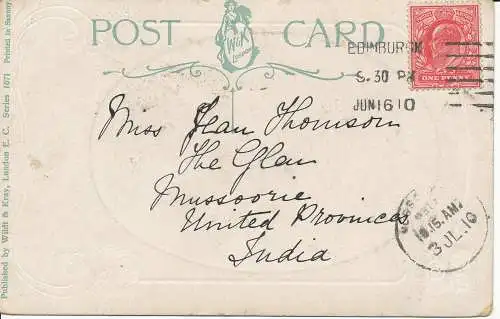 POST CARD
W&K
LONDON
EDINBURGH
5.30 PM
JUN 16 10
ONE PENNY
Miss Jean Thomson
The Glen
Mussoorie
United Provinces
India
10.15.AM
3 JL.10
Published by Wildt & Kray, London E. C. Series 1071 Printed in Saxony